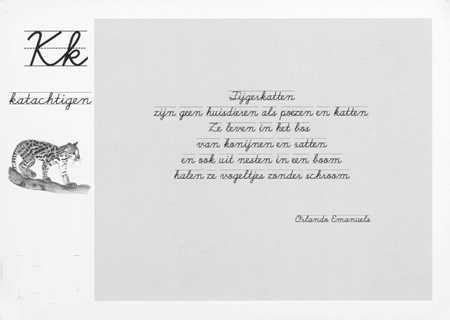 Kk
katachtigen
Tijgerkatten
zijn geen huisdieren als poezen en katten
Ze leven in het bos
van konijnen en ratten
en ook uit nesten in een boom
halen ze vogeltjes zonder schroom
Orlando Emanuels